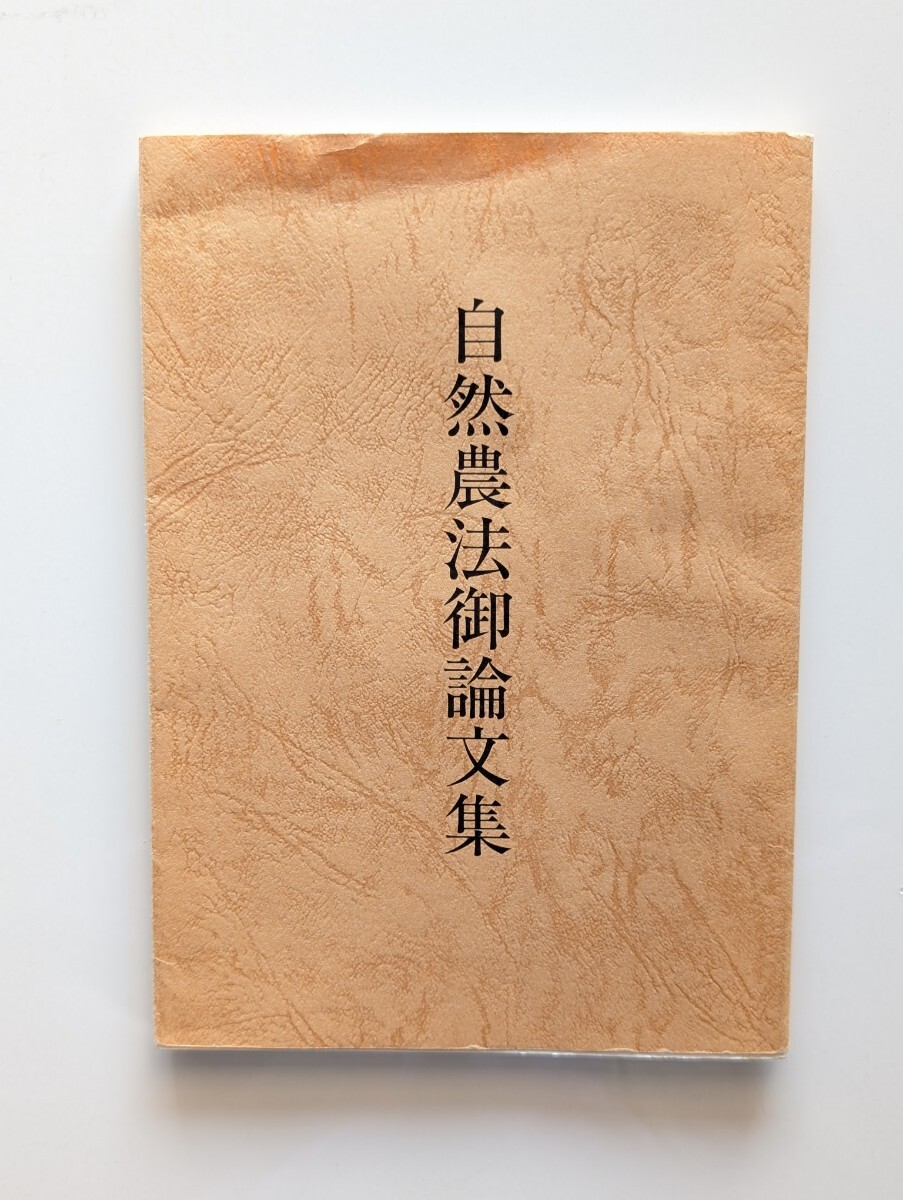 自然農法御論文集